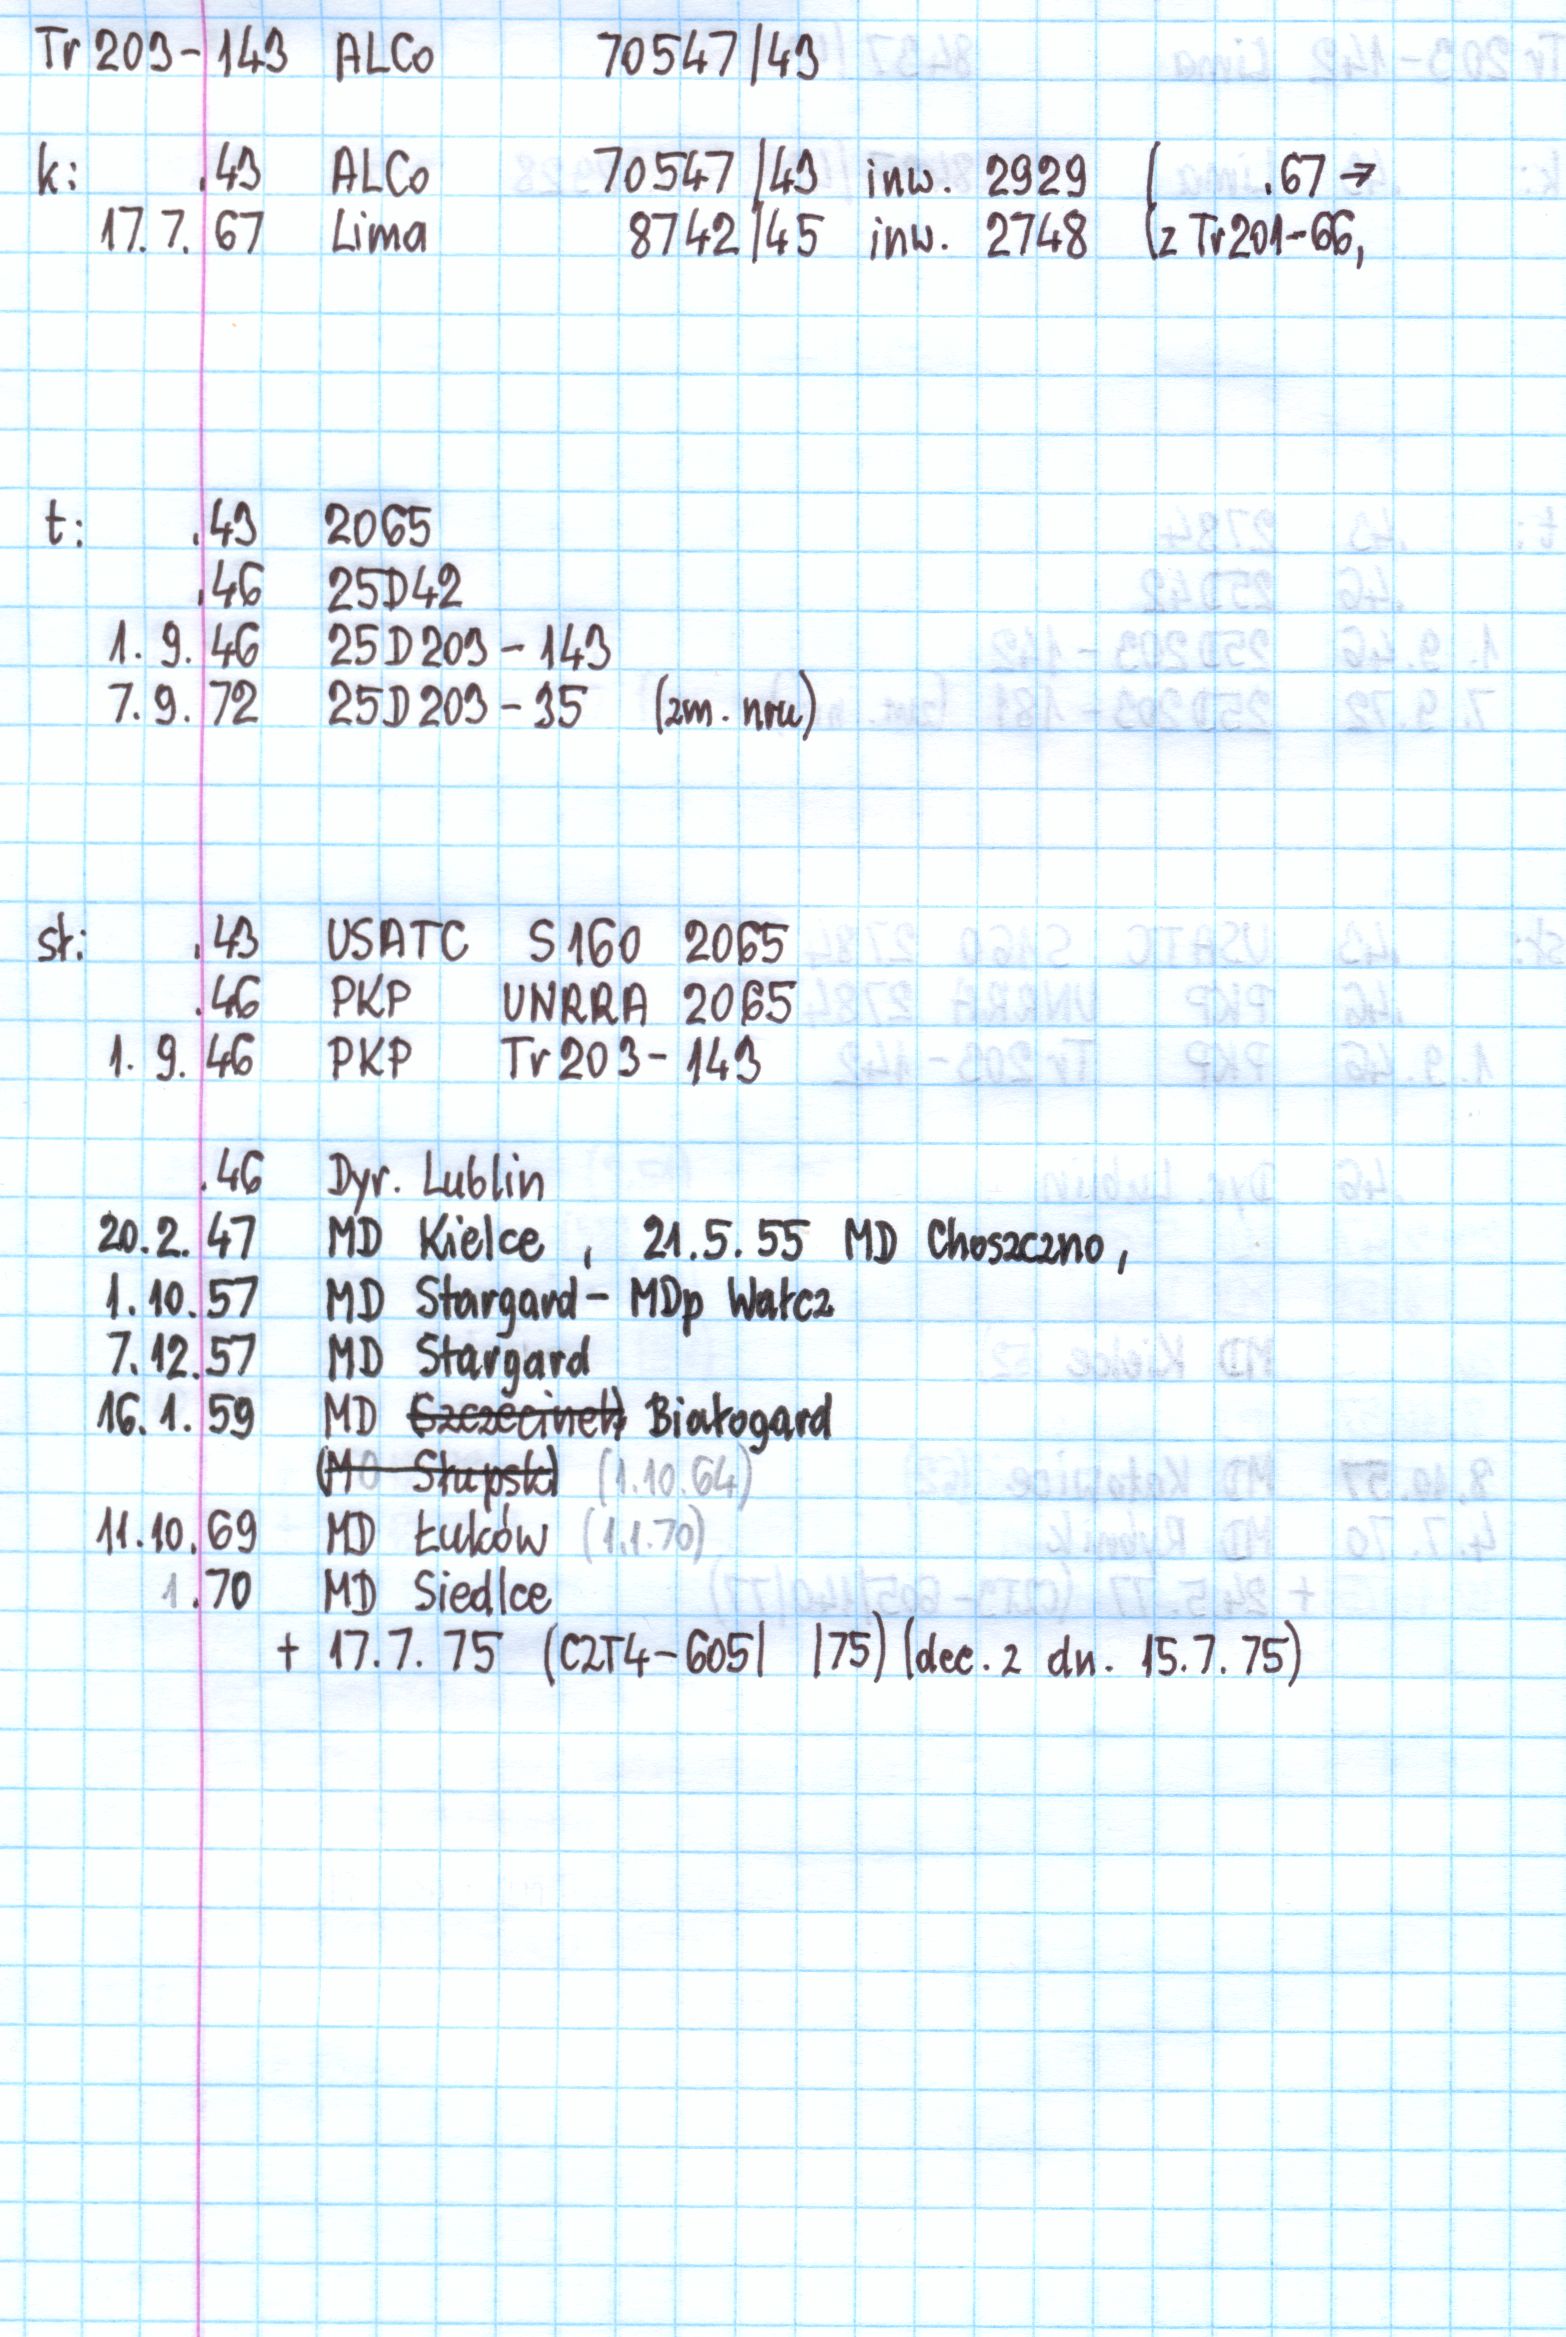 Tr 203-143 ALCo 70547/43
k: .43 ALCo 70547/43 inw. 2929 ( .67 →
17.7.67 Lima 8742/45 inw. 2748 (z Tr201-66,
t: .43 2065
.46 25D42
1.9.46 25D203-143
7.9.72 25D203-35 (zm. nru)
st: .43 USATC S160 2065
.46 PKP UNRRA 2065
1.9.46 PKP Tr203-143
.46 Dyr. Lublin
20.2.47 MD Kielce , 21.5.55 MD Choszczno,
1.10.57 MD Stargard - MDp Wałcz
7.12.57 MD Stargard
16.1.59 MD (Szczecinek) Białogard
(MD Słupsk) (1.10.64)
11.10.69 MD Łuków (1.1.70)
1.70 MD Siedlce
+ 17.7.75 (CZT4-605/ /75) (dec. z dn. 15.7.75)